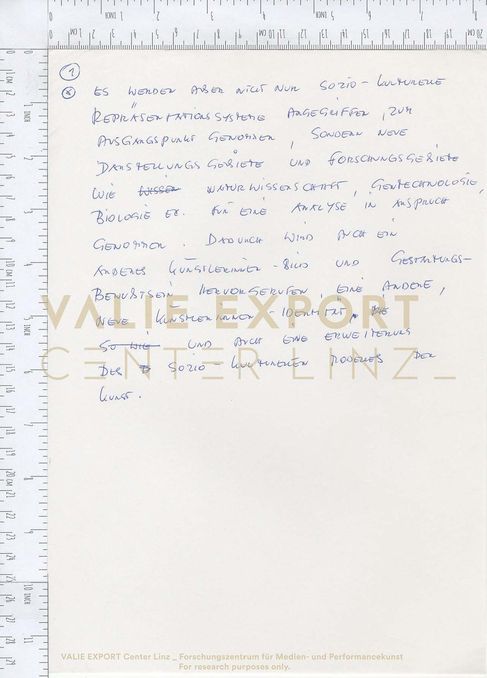 1
* ES WERDEN ABER NICHT NUR SOZIO-KULTURELLE
REPRÄSENTATIONSSYSTEME ANGEGRIFFEN, ZUM
AUSGANGSPUNKT GENOMMEN, SONDERN NEUE
DARSTELLUNGSGEBIETE UND FORSCHUNGSGEBIETE
WIE WISSEN NATURWISSENSCHAFT, GENTECHNOLOGIE,
BIOLOGIE FÜR EINE ANALYSE IN ANSPRUCH
GENOMMEN. DADURCH WIRD AUCH EIN
ANDERES KÜNSTLERINNEN-BILD UND GESTALTUNGS-
BEWUßTSEIN HERVORGERUFEN, EINE ANDERE,
NEUE KÜNSTLERINNEN-IDENTITÄT
SO WIE UND AUCH EINE ERWEITERUNG
DES SOZIO-KULTURELLEN MODELLES DER
KUNST.
VALIE EXPORT
CENTER LINZ_
VALIE EXPORT Center Linz _ Forschungszentrum für Medien- und Performancekunst
For research purposes only.